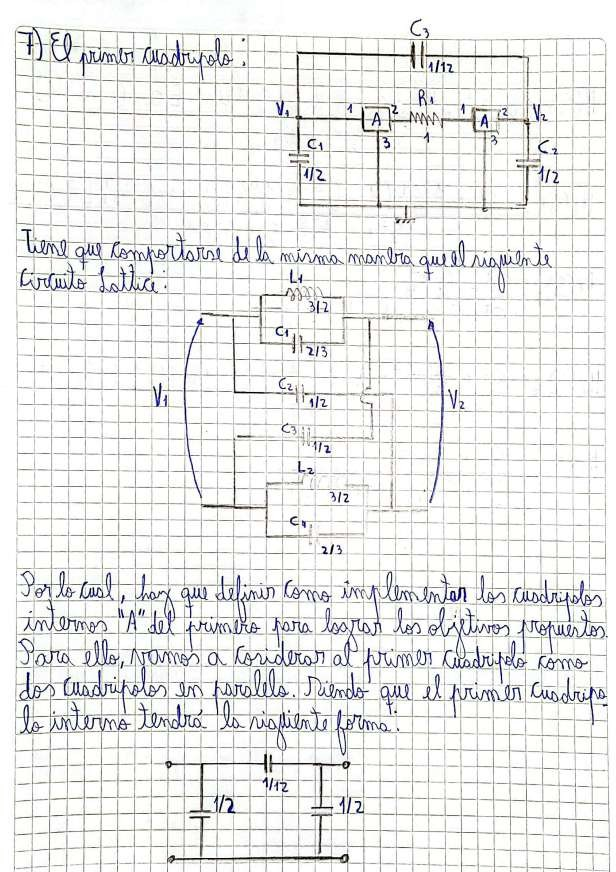 7) El primer cuadripolo:
C3
1/12
V1
1
A
2
R1
1
1
A
2
V2
3
3
C1
1/2
C2
1/2
Tiene que comportarse de la misma manera que el siguiente
Circuito Lattice:
L1
3/2
C1
2/3
V1
C2
1/2
V2
C3
1/2
L2
3/2
C4
2/3
Por lo cual, hay que definir como implementar los cuadripolos
internos "A" del primero para lograr los objetivos propuestos.
Para ello, vamos a cosiderar al primer cuadripolo como
dos cuadripolos en paralelo. Siendo que el primer cuadripo-
lo interno tendrá la siguiente forma:
1/12
1/2
1/2